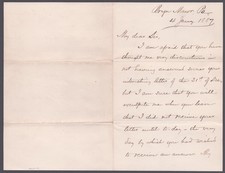 My dear Sir
I am afraid that you have
thought me very discourteous in
not having answered sooner your
interesting letter of the 21st of
but I am sure that you will
when you learn
that I did not receive your
letter until to day, the very
day by which you had wished
to receive an answer. My